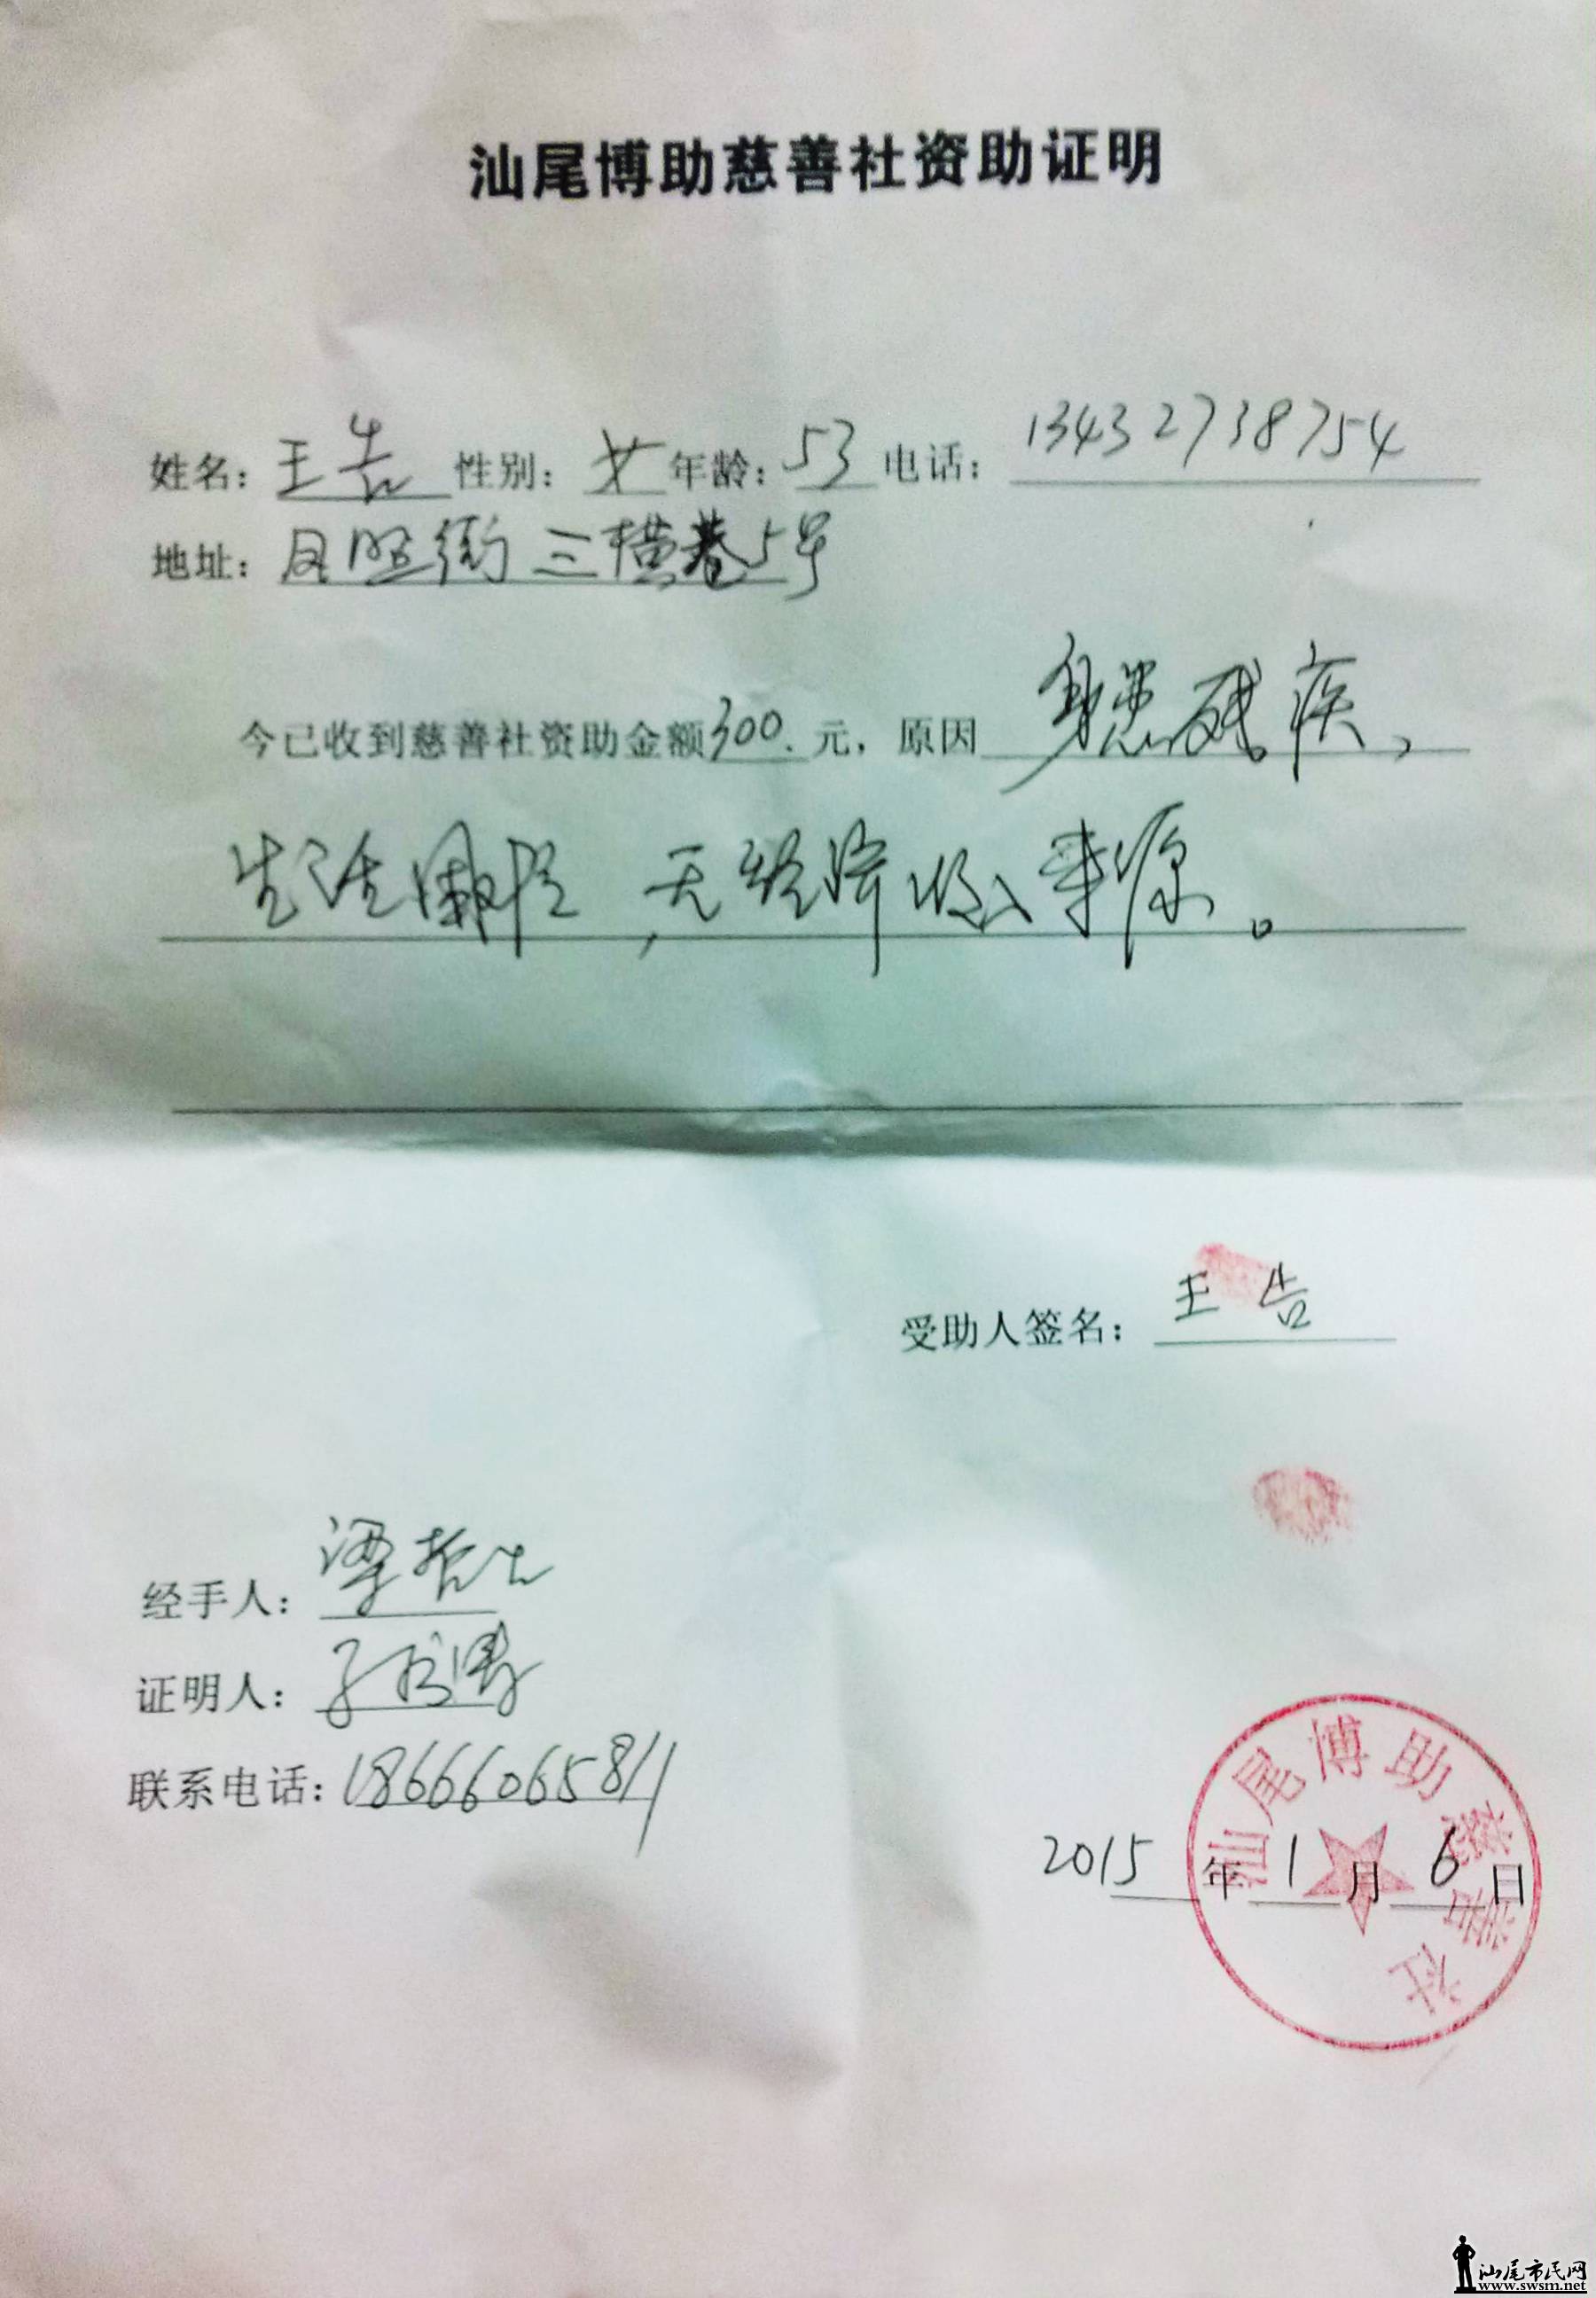 汕尾博助慈善社资助证明
姓名：王告 性别：女 年龄：53 电话：13432738754
地址：凤旺街三横巷5号
今已收到慈善社资助金额300.元，原因 身患残疾，
生活困难，无经济收入来源。
受助人签名：王告
经手人：
证明人：
联系电话：18666065811
汕尾博助慈善社
2015年1月6日
汕尾市民网
www.swsm.net